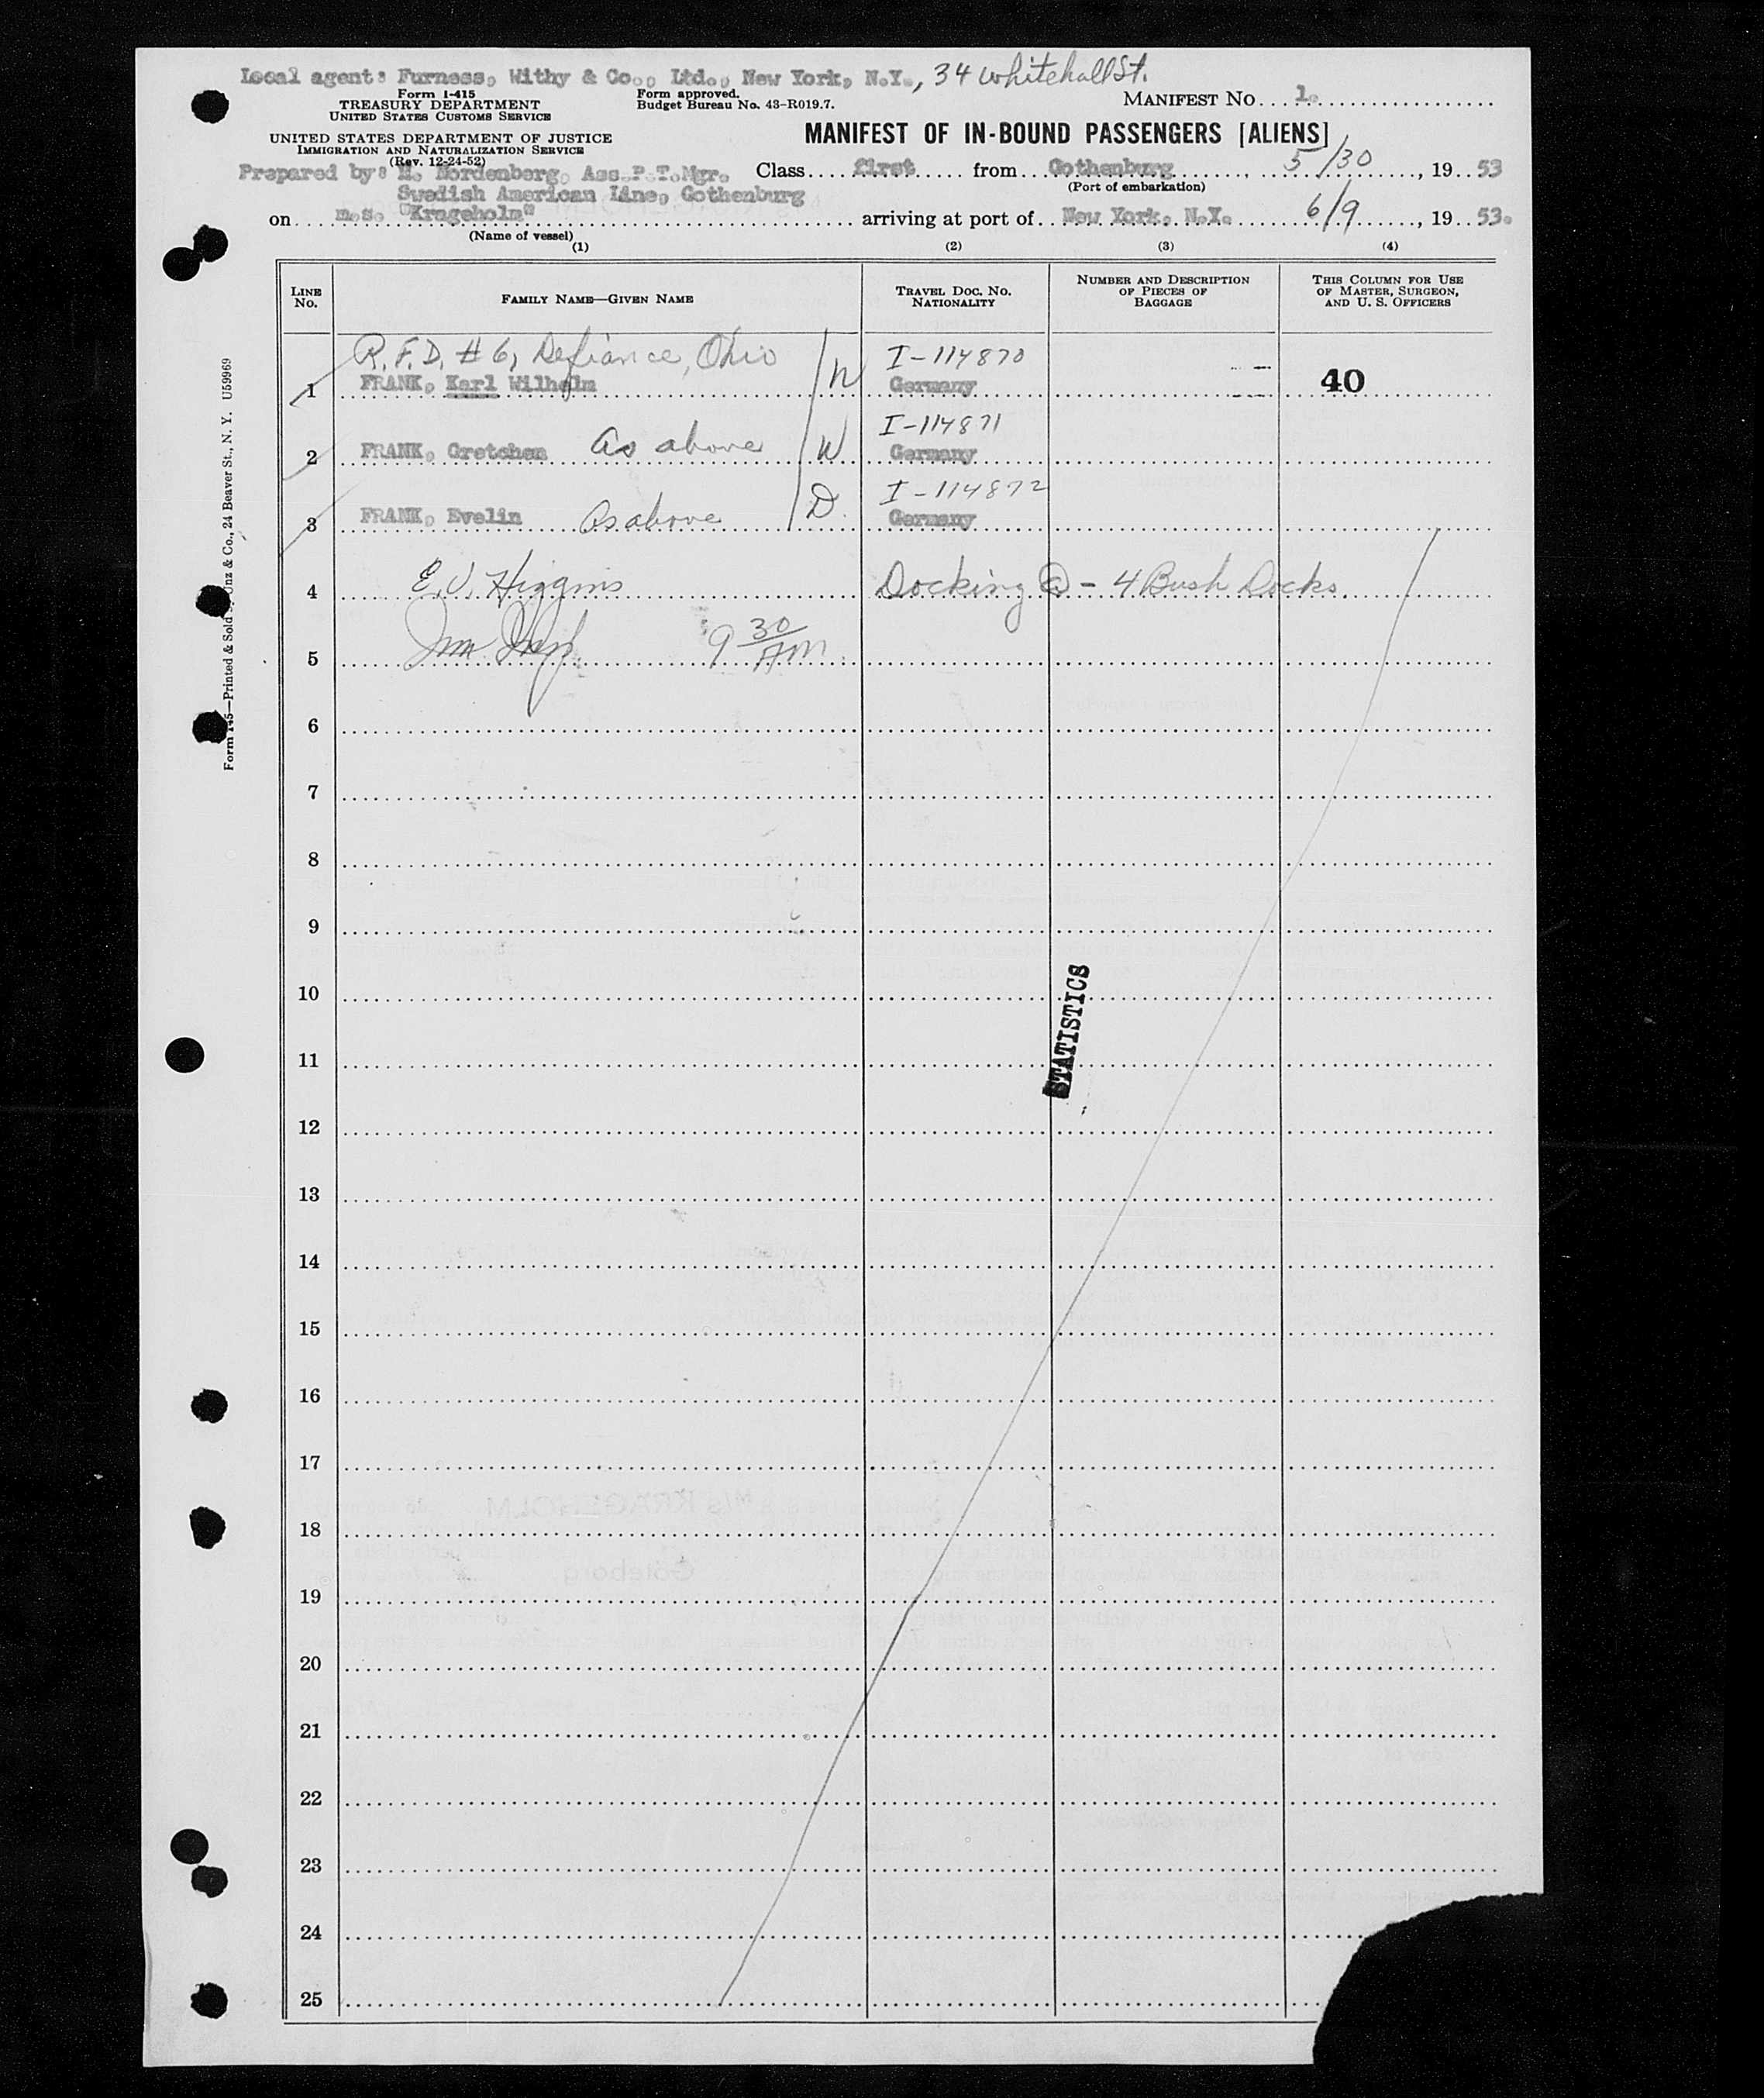 Local agent: Furness, Withy & Co., Ltd., New York, N.Y., 34 Whitehall St.
Form I-415
TREASURY DEPARTMENT
UNITED STATES CUSTOMS SERVICE
Form approved.
Budget Bureau No. 43-R019.7.
MANIFEST NO. 1.
UNITED STATES DEPARTMENT OF JUSTICE
IMMIGRATION AND NATURALIZATION SERVICE
(Rev. 12-24-52)
MANIFEST OF IN-BOUND PASSENGERS [ALIENS]
Prepared by: H. Nordenberg, Ass.P.T.Mgr.
Swedish American Line, Gothenburg
Class first from Gothenburg, 5/30, 19 53
(Port of embarkation)
on m.s. "Krageholm" arriving at port of New York, N.Y. 6/9, 19 53.
(Name of vessel)
(1) (2) (3) (4)
LINE NO.
FAMILY NAME—GIVEN NAME
TRAVEL DOC. NO. NATIONALITY
NUMBER AND DESCRIPTION OF PIECES OF BAGGAGE
THIS COLUMN FOR USE OF MASTER, SURGEON, AND U. S. OFFICERS
R.F.D. #6, Defiance, Ohio I-114870
1 FRANK, Karl Wilhelm Germany 40
I-114871
2 FRANK, Gretchen As above W Germany
I-114872
3 FRANK, Evelin As above D Germany
4 E.J. Higgins Docking @ - 4 Bush Docks
5 9 30 AM
6
7
8
9
10
STATISTICS
11
12
13
14
15
16
17
18
19
20
21
22
23
24
25
Printed & Sold Unz & Co., 24 Beaver St., N. Y. U59969